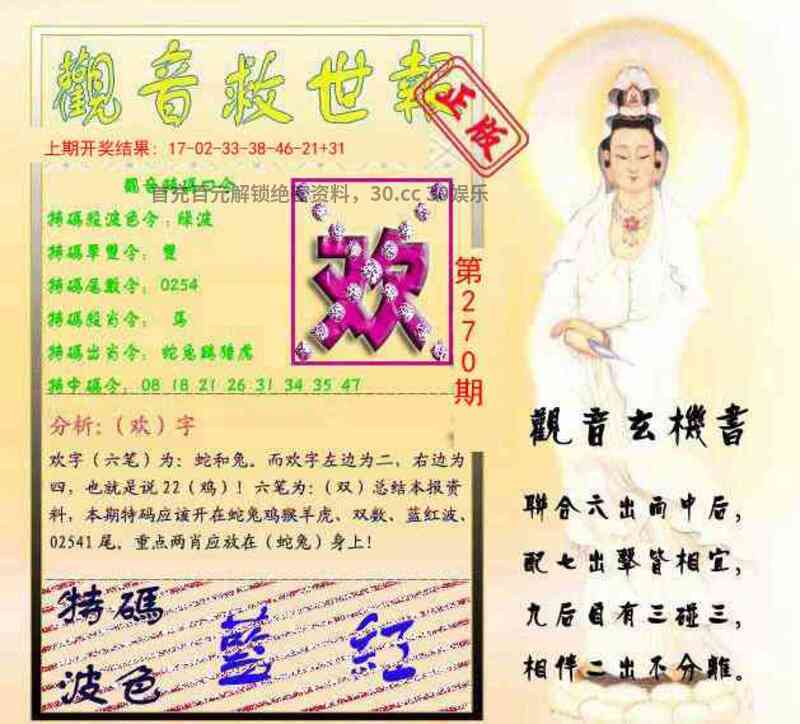 觀音救世報
正版
上期开奖结果：17-02-33-38-46-21+31
觀音特碼口令
首充百元解锁绝密资料，30.cc 30娱乐
特碼殺波色令：綠波
特碼單雙令：雙
特碼尾數令：0254
特碼殺肖令：馬
特碼出肖令：蛇兔鷄猪虎
特中碼令：08 18 21 26 31 34 35 47
欢
第270期
分析：（欢）字
欢字（六笔）为：蛇和兔。而欢字左边为二，右边为
四，也就是说22（鸡）！六笔为：（双）总结本报资
料，本期特码应该开在蛇兔鸡猴羊虎、双数、蓝红波、
02541尾，重点两肖应放在（蛇兔）身上！
特碼
波色
藍 紅
觀音玄機書
聯合六出而中后，
配七出擊皆相宜，
九后目有三碰三，
相伴二出不分離。